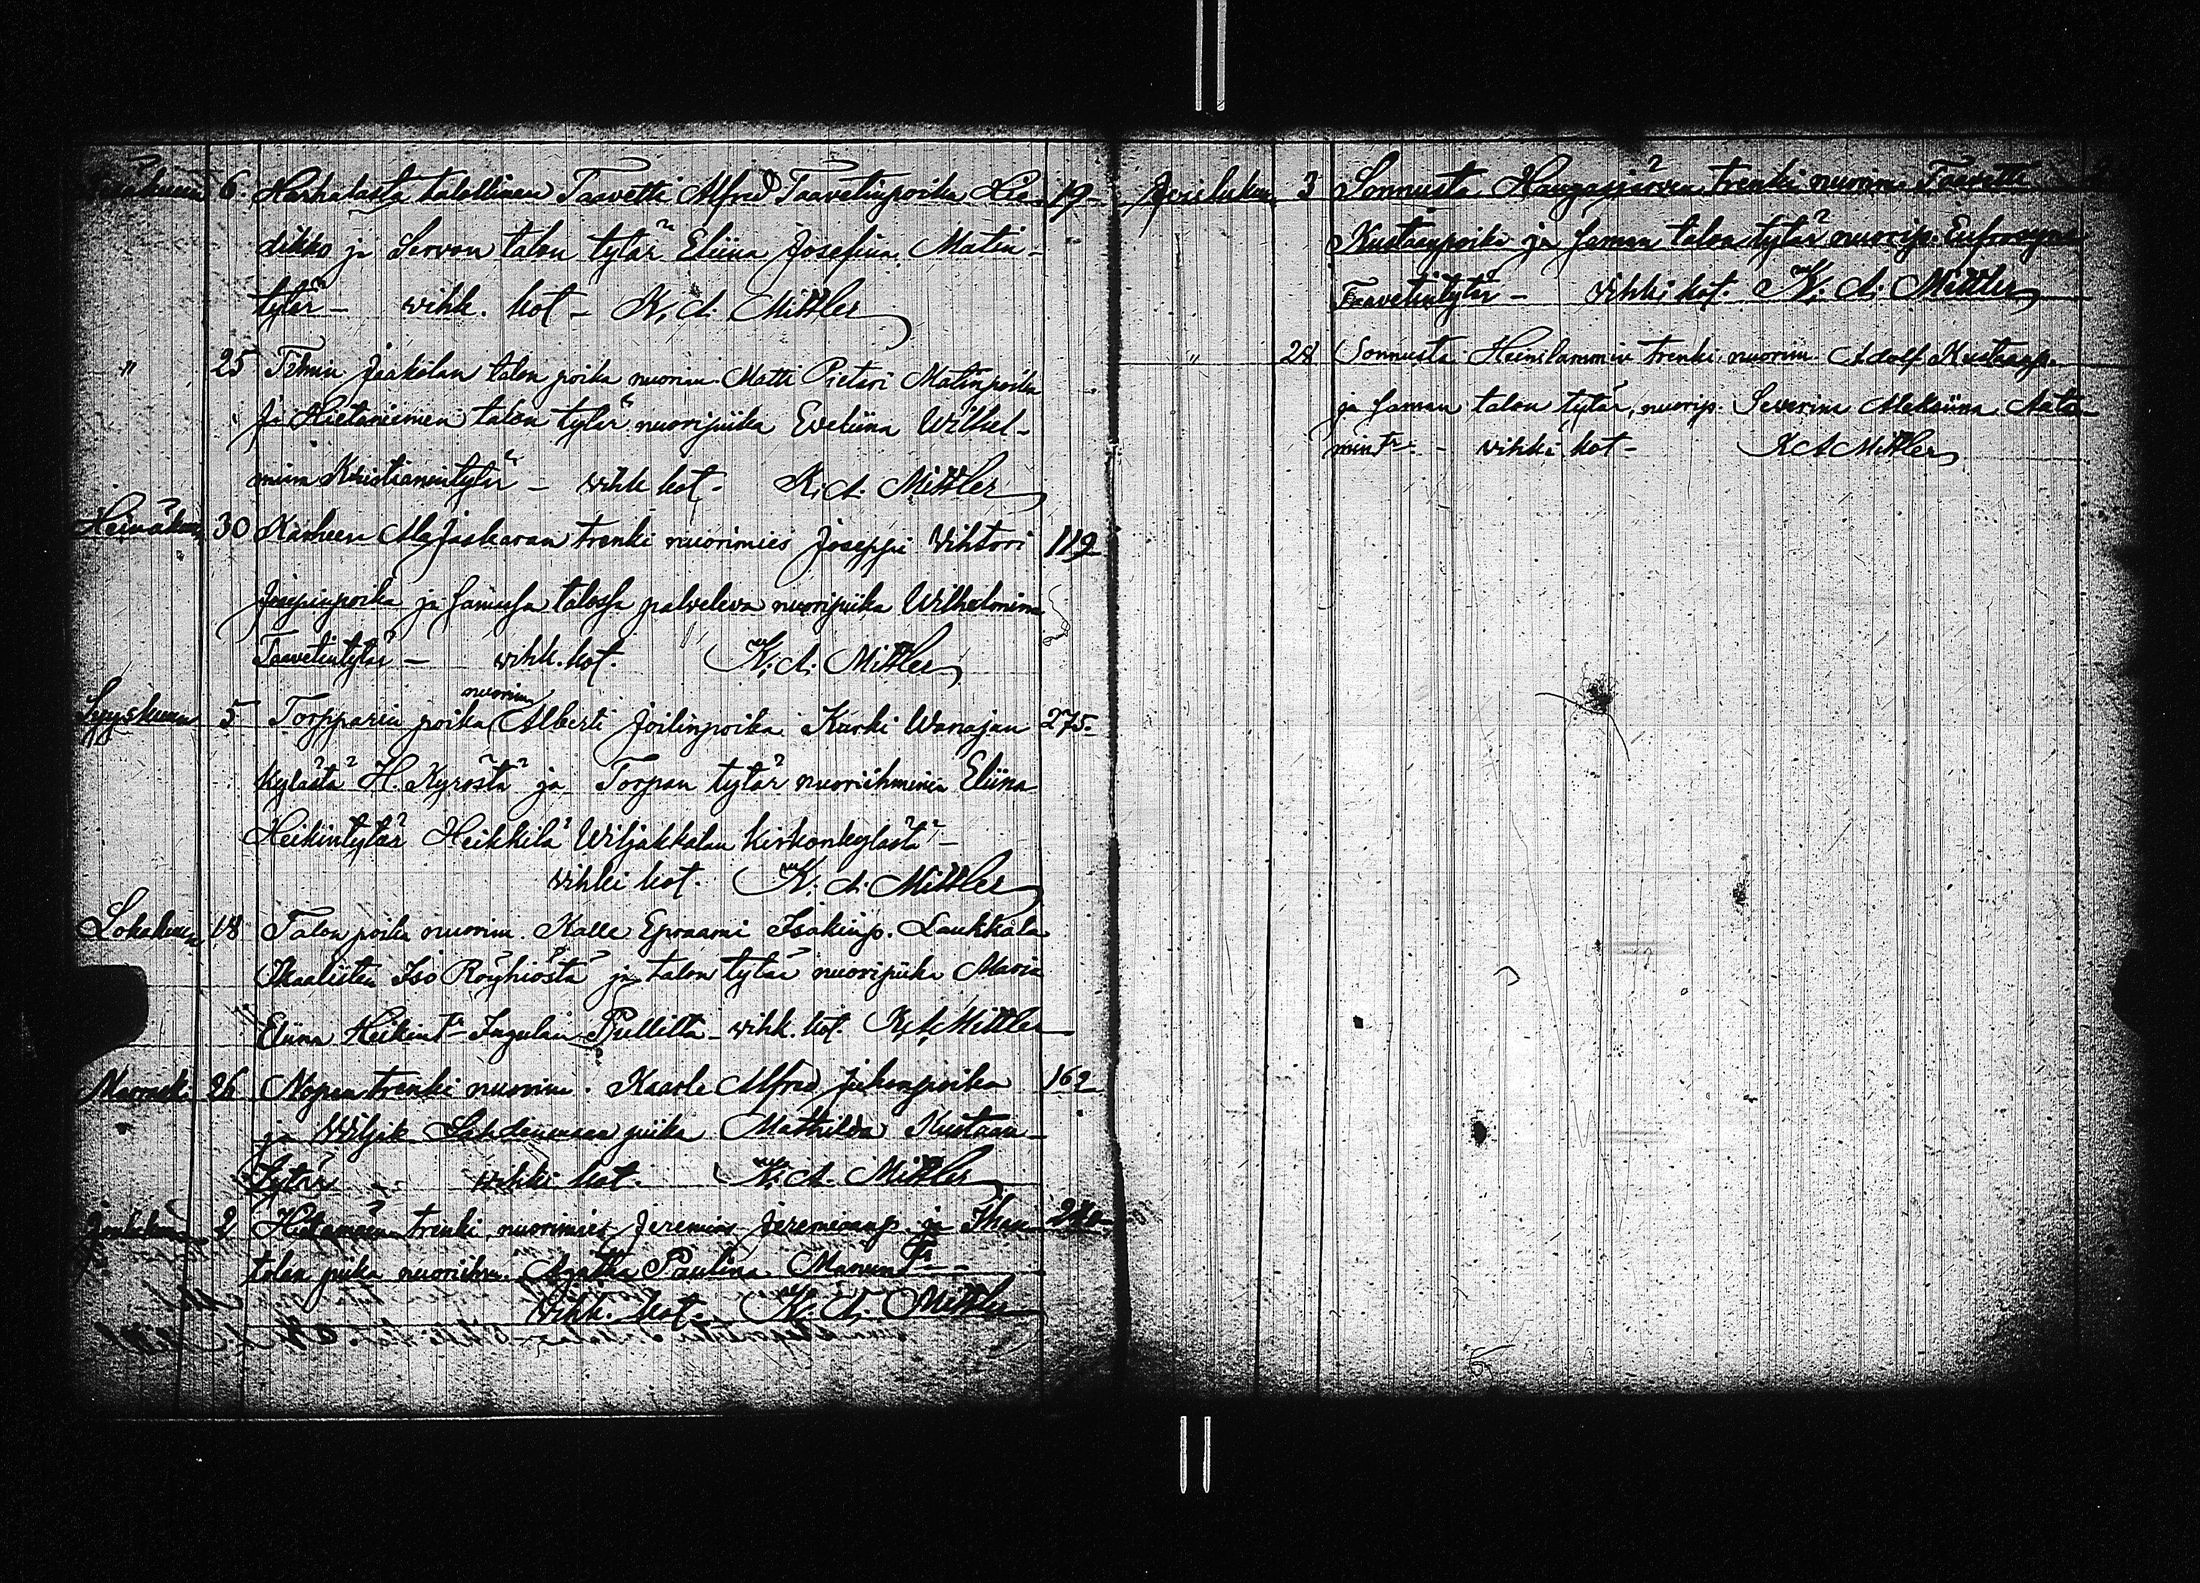 6. Harhalasta talollinen Taavetti Alfred Taavetinpoika Lie- 19
dikko ja Servon talon tytär Eliina Josefina Matin-
tytär – vihk. hot – K. A. Mittler
" 25 Temin Jaakolan talon poika nuorim. Matti Pietari Matinpoika
ja Hietaniemen talon tytär nuoripiika Eveliina Wilhel-
miina Kristianintytär – vihk hot – K. A. Mittler
Heinäkuu 30 Karheen AlaJaskaran trenki nuorimies Joseppi Vihtori 119
Josepinpoika ja samassa talossa palveleva nuoripiika Wilhelmina
Taavetintytär – vihk. hot. K. A. Mittler
nuorim
Syyskuun 5 Torpparin poika Alberti Joilinpoika Kurki Wanajan 275.
kylästä H. Kyröstä ja Torpan tytär nuoriihminen Eliina
Heikintytär Heikkilä Wiljakkalan kirkonkylästä –
vihki hot. K. A. Mittler
Lokakuun 18 Talon poika nuorim. Kalle Epraami Isakinp. Laukkala
Ikaalisten Iso Röyhiöstä ja talon tytär nuoripiika Maria
Eliina Heikint: Inkulan Prelliltä – vihk. hot. K. A. Mittler
Marrask. 26 Nopan trenki nuorim. Kaarle Alfred Juhanpoika 162
ja Viljak piika Mathilda Kustaan-
tytär – vihki hot. K. A. Mittler
Joulukuu 2 trenki, nuorimies Jeremias Jeremiaanp. ja
talon piika nuoriihm. Agatha Paulina Manunt: –
vihk. hot. K. A. Mittler
Joulukuu 3 Sonnusta Haugasjärven trenki nuorim. Taavetti
Kustaanpoika ja saman talon tytär nuorip. Eufrosyna
Taavetintytär – vihki hot. K. A. Mittler
" 28 Sonnusta Heinilammin trenki nuorim. Adolf Kustaanp.
ja saman talon tytär, nuorip. Severina Aleksiina Aata-
mint: – vihki hot – K A Mittler